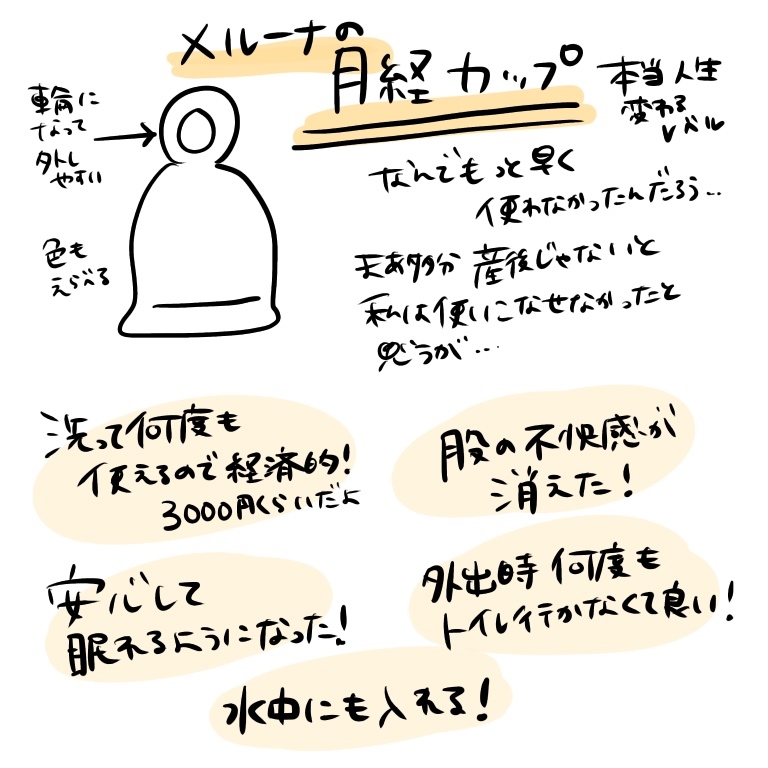 メルーナの
月経カップ
本当人生
変わる
レベル
輪に
なって
外し
やすい
色も
えらべる
なんでもっと早く
使わなかったんだろう…
まあ多分 産後じゃないと
私は使いこなせなかったと
思うが…
洗って何度も
使えるので経済的!
3000円くらいだよ
股の不快感が
消えた!
安心して
眠れるようになった!
外出時 何度も
トイレ行かなくて良い!
水中にも入れる!